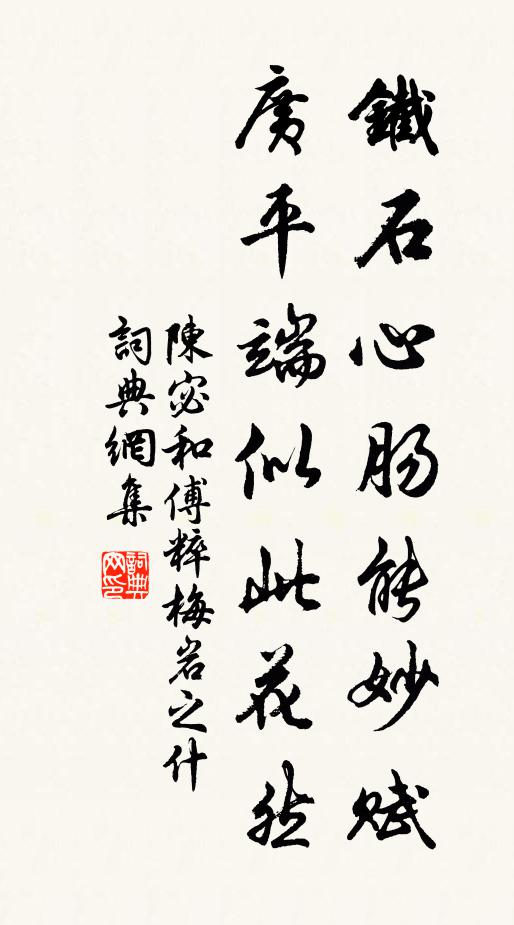 鐵石心肠能妙賦
廣平端似此花然
陳宓和傅粹梅岩之什
詞典網集
詞典网印